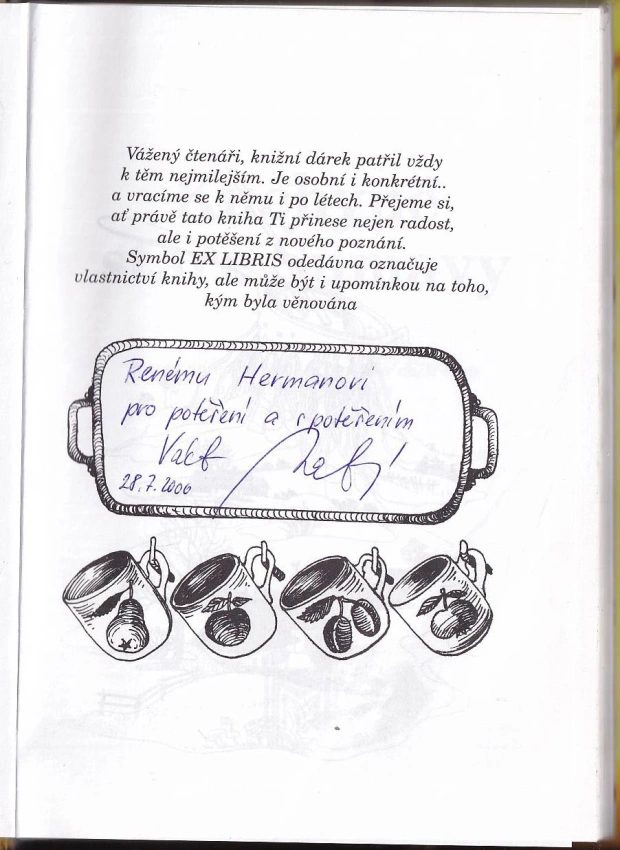 Vážený čtenáři, knižní dárek patřil vždy
k těm nejmilejším. Je osobní i konkrétní..
a vracíme se k němu i po létech. Přejeme si,
ať právě tato kniha Ti přinese nejen radost,
ale i potěšení z nového poznání.
Symbol EX LIBRIS odedávna označuje
vlastnictví knihy, ale může být i upomínkou na toho,
kým byla věnována
Renému Hermanovi
pro potěšení a s potěšením
28.7.2006